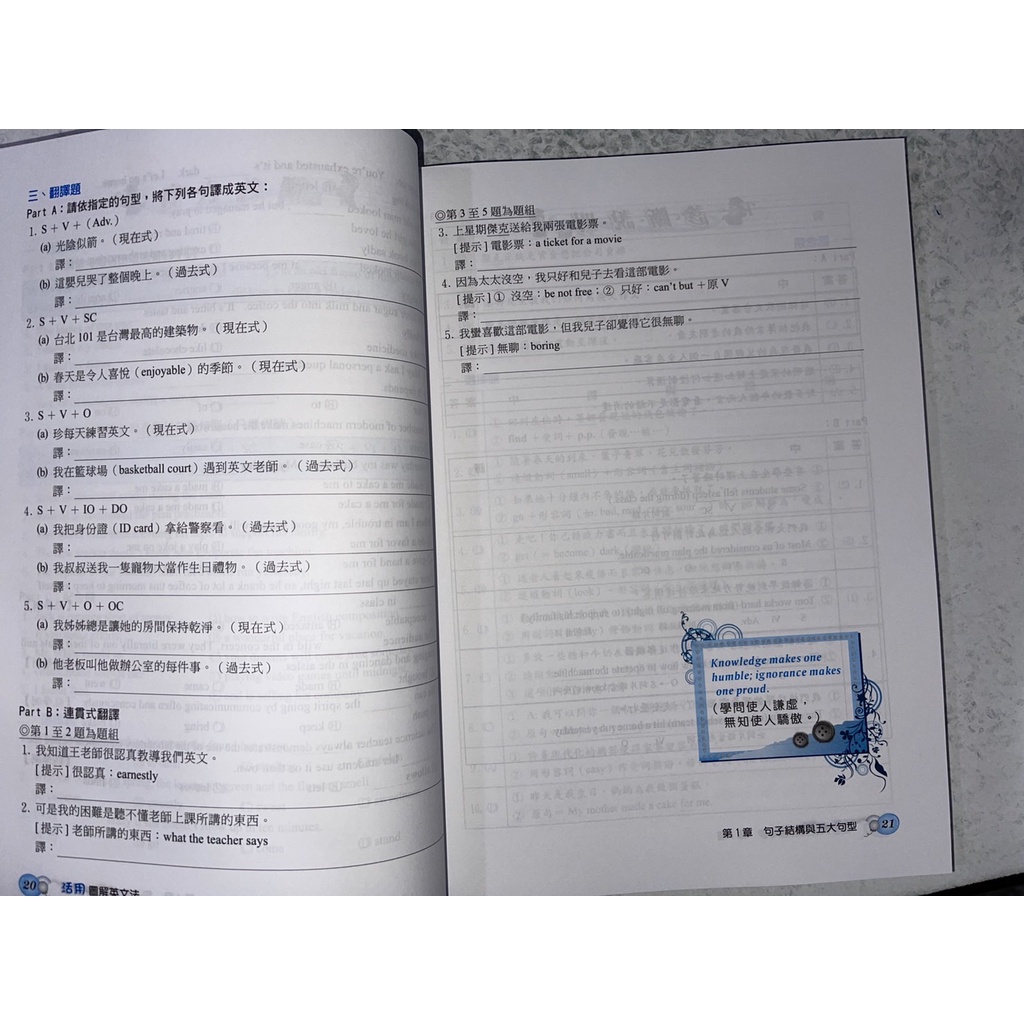 三、翻譯題
Part A：請依指定的句型，將下列各句譯成英文：
1. S + V +（Adv.）
(a) 光陰似箭。（現在式）
譯：
(b) 這嬰兒哭了整個晚上。（過去式）
譯：
2. S + V + SC
(a) 台北 101 是台灣最高的建築物。（現在式）
譯：
(b) 春天是令人喜悅（enjoyable）的季節。（現在式）
譯：
3. S + V + O
(a) 珍每天練習英文。（現在式）
譯：
(b) 我在籃球場（basketball court）遇到英文老師。（過去式）
譯：
4. S + V + IO + DO
(a) 我把身份證（ID card）拿給警察看。（過去式）
譯：
(b) 我叔叔送我一隻寵物犬當作生日禮物。（過去式）
譯：
5. S + V + O + OC
(a) 我姊姊總是讓她的房間保持乾淨。（現在式）
譯：
(b) 他老板叫他做辦公室的每件事。（過去式）
譯：
Part B：連貫式翻譯
◎第 1 至 2 題為題組
1. 我知道王老師很認真教導我們英文。
[提示] 很認真：earnestly
譯：
2. 可是我的困難是聽不懂老師上課所講的東西。
[提示] 老師所講的東西：what the teacher says
譯：
20 活用 圖解英文法
◎第 3 至 5 題為題組
3. 上星期傑克送給我兩張電影票。
[提示] 電影票：a ticket for a movie
譯：
4. 因為太太沒空，我只好和兒子去看這部電影。
[提示] ① 沒空：be not free；② 只好：can't but ＋原 V
譯：
5. 我蠻喜歡這部電影，但我兒子卻覺得它很無聊。
[提示] 無聊：boring
譯：
Knowledge makes one
humble; ignorance makes
one proud.
（學問使人謙虛，
無知使人驕傲。）
第 1 章 句子結構與五大句型 21